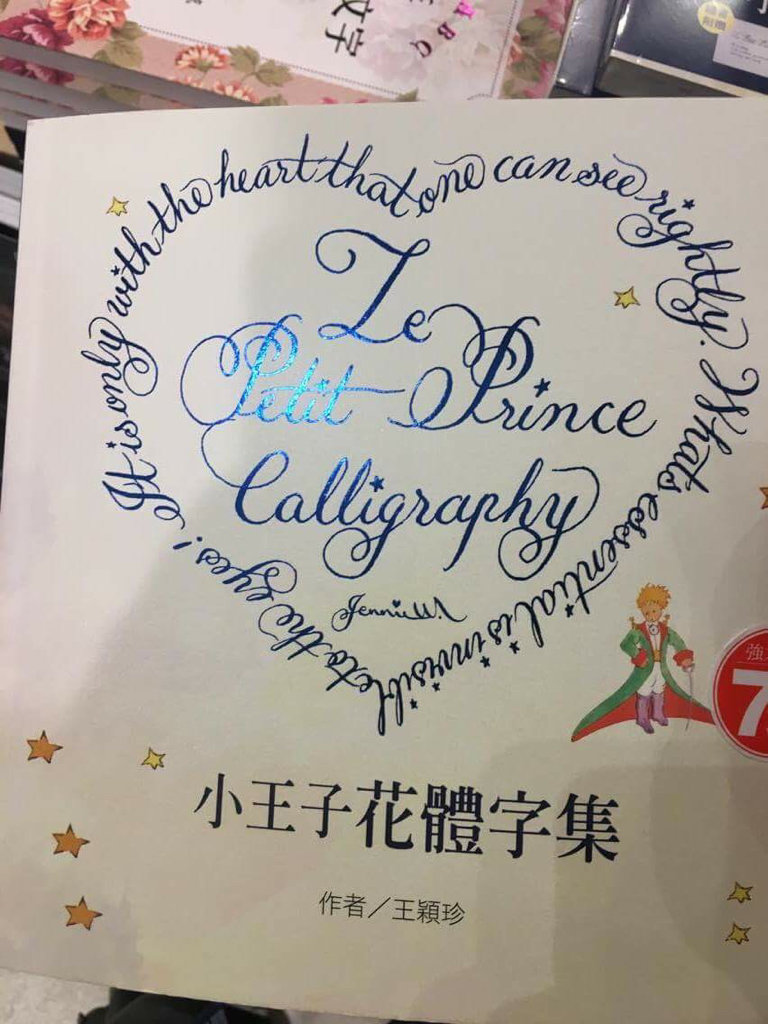 ABC
文字
It is only with the heart that one can see rightly. What's essential is invisible to the eyes!
Le
Petit Prince
Calligraphy
Jennie W.
小王子花體字集
作者／王穎珍
強
7